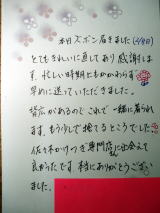 本日ズボン届きました(4/8日)
とてもきれいに直してあり感謝しま
す。忙しい時期にもかかわらず
早めに送っていただきました。
背広があるのでこれで一緒に着られ
ます。もう少しで捨てるところでした。
佐々木かけつぎ専門店さんに出会えて
良かったです。本当にありがとうござい
ました。